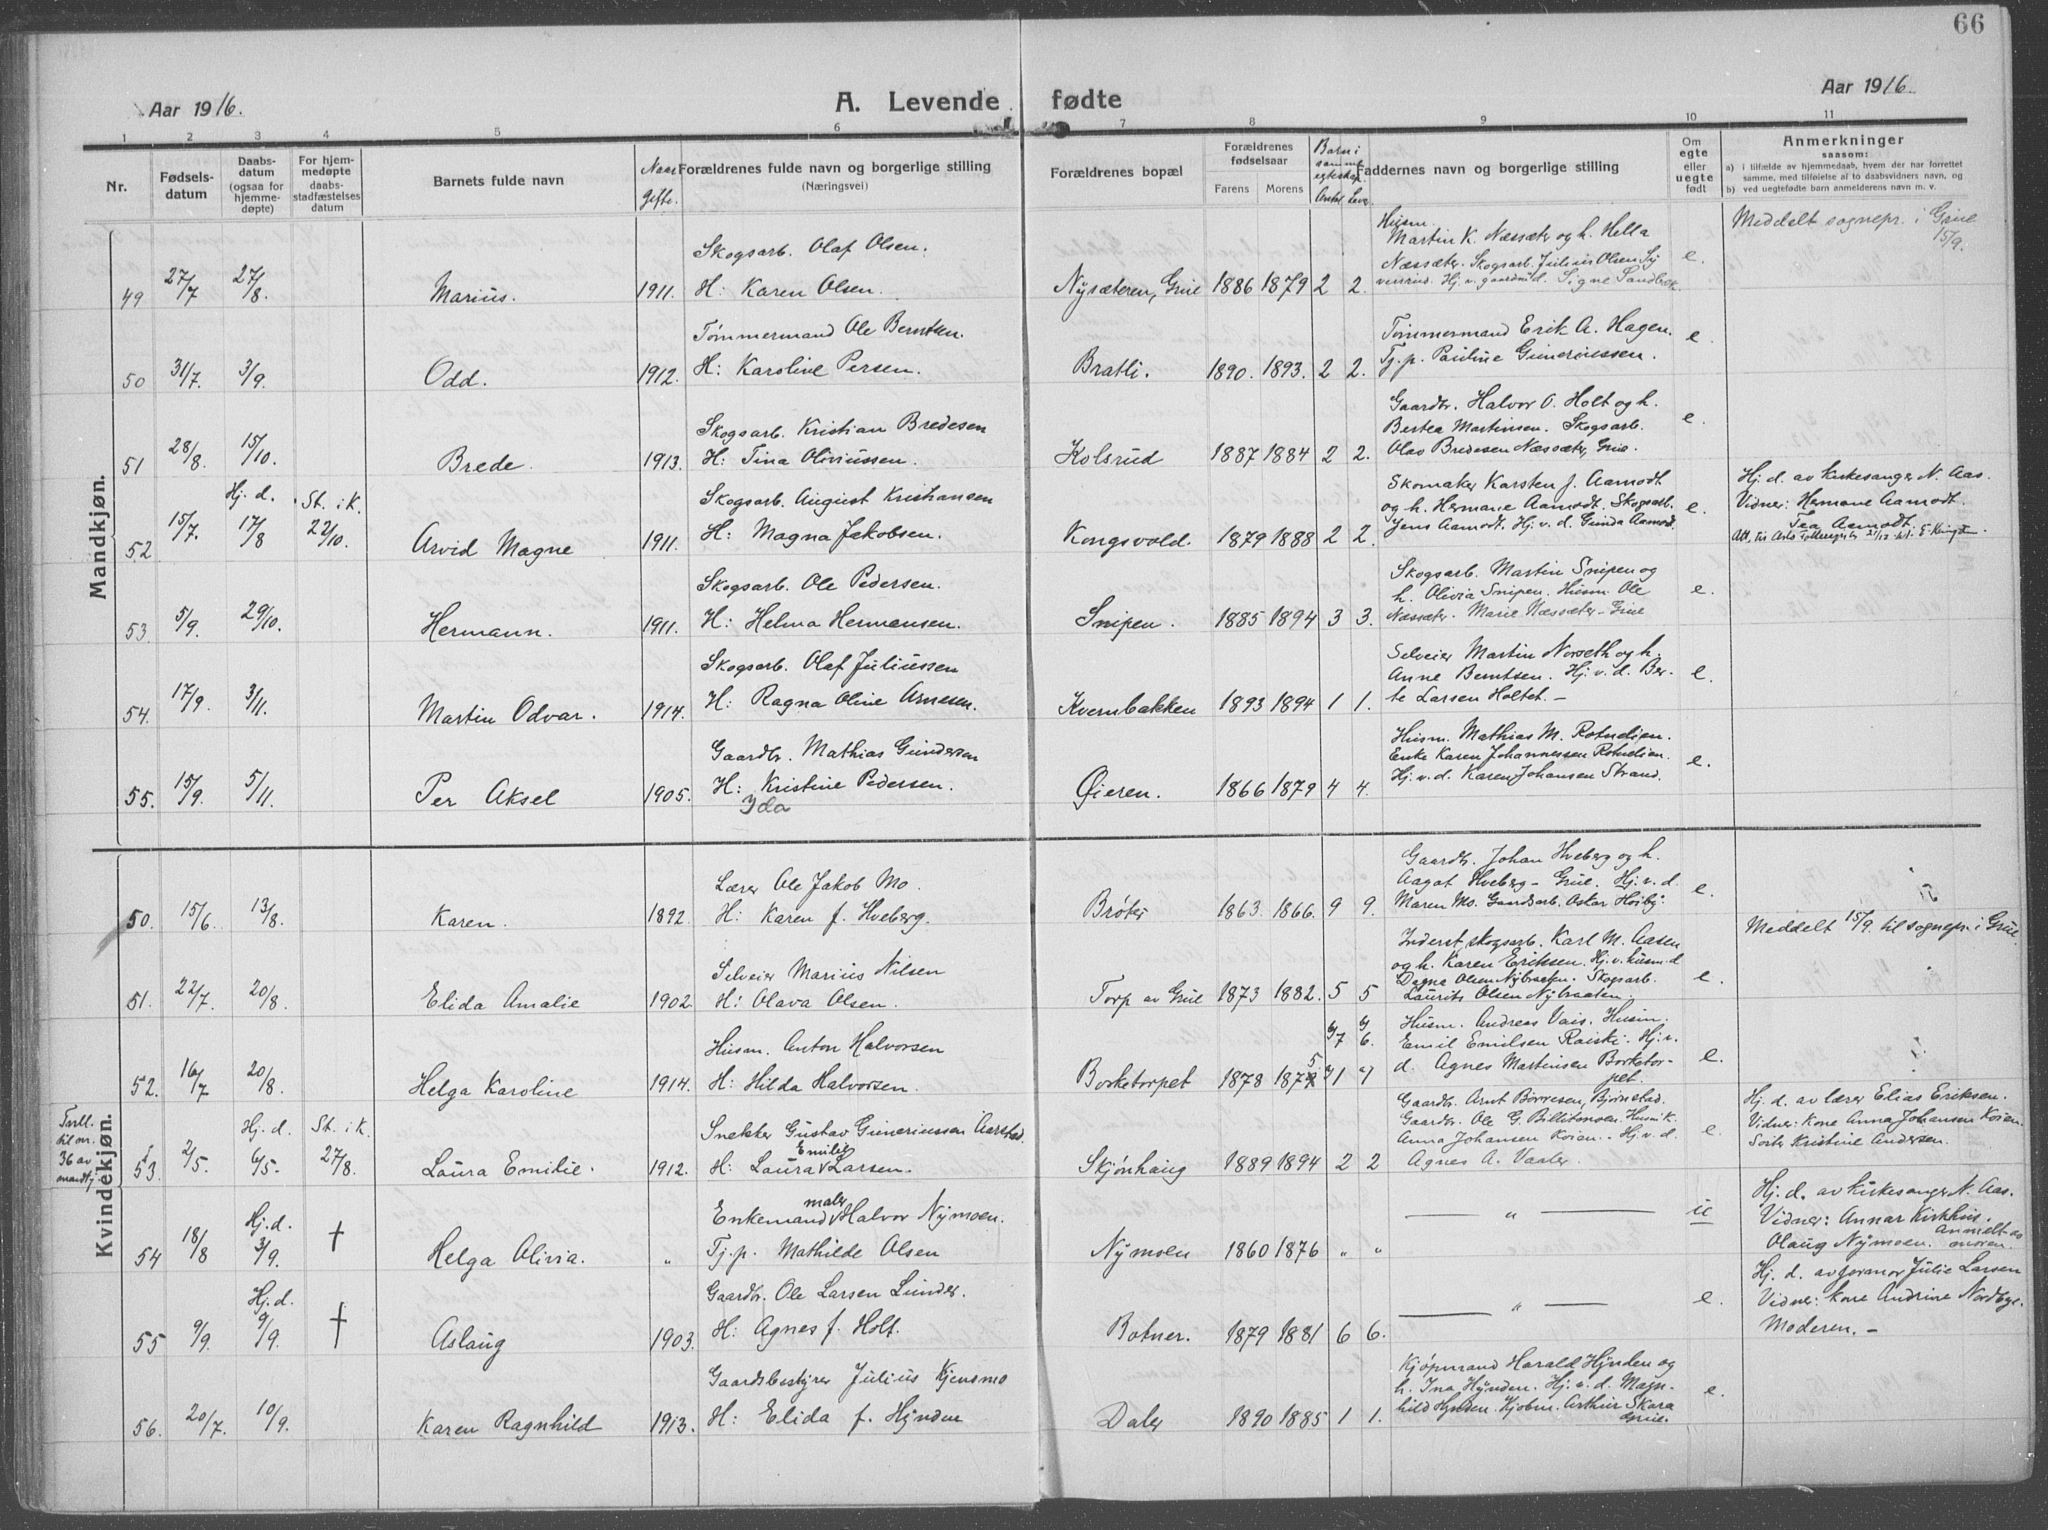 66
Aar 1916.
A. Levende fødte
Aar 1916.
1 2 3 4 5 6 7 8 9 10 11
Nr.
Fødsels-
datum
Daabs-
datum
(ogsaa for
hjemme-
døpte)
For hjem-
medøpte
daabs-
stadfæstelses
datum
Barnets fulde navn
Naar
gifte.
Forældrenes fulde navn og borgerlige stilling
(Næringsvei)
Forældrenes bopæl
Forældrenes
fødselsaar
Farens Morens
Barn i
samme
egteskap.
Antal Leve
Faddernes navn og borgerlige stilling
Om
egte
eller
uegte
født
Anmerkninger
saasom:
a) i tilfælde av hjemmedaab, hvem der har forrettet
samme, med tilføielse af to daabsvidners navn, og
b) ved uegtefødte barn anmelderens navn m. v.
Mandkjøn.
49 27/7 27/8. Marius. 1911.
Skogsarb. Olaf Olsen.
H: Karen Olsen.
Nysæteren, Grue 1886 1879 2 2.
Husm.
Martin K. Næssæter og h. Hella
Næssæter. Skogsarb. Julius Olsen
Hj. v. gaardm.d. Signe Sandbæk.
e.
Meddelt sognepr. i Grue
15/9.
50 31/7. 3/9. Odd. 1912.
Tømmermand Ole Berntsen.
H: Karoline Persen.
Bratli. 1890. 1893. 2 2.
Tømmermand Erik A. Hagen.
Tj.p. Pauline Gunerüssen.
e.
51 28/8. 15/10. Brede. 1913.
Skogsarb. Kristian Bredesen
H: Tina Oliviussen.
Kolsrud 1887 1884 2 2.
Gaardbr. Halvor O. Holt og h.
Bertea Martinsen. Skogsarb.
Olav Bredesen Næssæter, Grue.
e.
52 15/7. Hj. d. 17/8 St. i K. 22/10. Arvid Magne 1911.
Skogsarb. August Kristiansen
H: Magna Jakobsen.
Kongsvold. 1879 1888 2 2.
Skomaker Karsten J. Aamodt
og h. Hermane Aamodt. Skogsarb.
Jens Aamodt. Hj. v. d. Gunda Aamodt.
e.
Hj. d. av kirkesanger N. Aas.
Vidner: Hermane Aamodt.
Tea Aamodt.
53 5/9. 29/10. Hermann. 1911.
Skogsarb. Ole Pedersen.
H: Helma Hermansen.
Snipen. 1885 1894 3 3.
Skogsarb. Martin Snipen og
h. Olivia Snipen. Husm. Ole
Næssæter. Marie Næssæter - Grue
e.
54. 17/9. 3/11. Martin Odvar. 1914.
Skogsarb. Olaf Juliussen
H: Ragna Oline Arnesen.
Kvernbakken 1893 1894 1 1.
Selveier Martin Norseth og h.
Anne Berntsen. Hj. v. d. Ber-
te Larsen Holtet. -
e.
55. 15/9. 5/11. Per Aksel 1905.
Gaardbr. Mathias Gundersen
H: Kristine Pedersen.
Ida
Øieren. 1866 1879 4 4.
Husm. Mathias M. Rotudien.
Enke Karen Johannessen Rotudien.
Hj. v. d. Karen Johansen Strand.
e.
Kvindekjøn.
50. 15/6. 13/8. Karen. 1892.
Lærer Ole Jakob Mo.
H: Karen f. Hveberg.
Brøter 1863. 1866. 9 9.
Gaardbr. Johan Hveberg og h.
Aagot Hveberg - Grue. Hj. v. d.
Maren Mo. Gaardsarb. Oskar Høiby.
e.
Meddelt 15/9. til sognepr. i Grue.
51. 22/7. 20/8. Elida Amalie 1902.
Selveier Marius Nilsen
H: Olava Olsen.
Torp av Grue 1873 1882. 5 5
Inderst, skogsarb. Karl M. Aasen
og h. Karen Eriksen. Hj. v. husm.d
Dagna Olsen Nybraaten. Skogsarb.
Laurits Olsen Nybraaten.
e.
52. 16/7 20/8. Helga Karoline 1914.
Husm. Anton Halvorsen
H: Hilda Halvorsen.
Borketorpet 1878 1875
Husm. Andreas Vais. Husm.
Emil Emilsen Raiski. Hj. v.
d. Agnes Martinsen Borketor-
pet.
e.
Tvill.
til nr.
36 av
mandkj.
53. 2/5. Hj. d. 6/5. St. i K. 27/8. Laura Emilie. 1912.
Snekker Gustav Guneriussen Aarstad
Emilie
H: Laura Larsen.
Skjønhaug 1889 1894 2 2
Gaardbr. Arnt Børresen, Bjørnstad.
Gaardbr. Ole G. Billitmoen. Husm.k.
Anna Johansen Koien. Hj. v. d.
Agnes A. Vaaler.
e.
Hj. d. av lærer Elias Eriksen.
Vidner: Kone Anna Johansen Koien.
Kristine Andersen.
54 18/8 Hj. d. 3/9. † Helga Olivia. „
maler
Enkemand Halvor Nymoen.
Tj. p. Mathilde Olsen
Nymoen 1860 1876 „ „
„
u
Hj. d. av kirkesanger N. Aas.
Vidner: Annar Kirkhus.
Olaug Nymoen. Anmeldt av
moren.
55 9/9. Hj. d. 9/9. † Aslaug 1903.
Gaardbr. Ole Larsen Lunder.
H: Agnes f. Holt.
Botner. 1879 1881 6 6.
„
e.
Hj. d. av jormor Julie Larsen
Vidner: Kone Andrine Nordbye.
Moderen. -
56. 20/7. 10/9. Karen Ragnhild 1913.
Gaardsbestyrer Julius Kjensmo
H: Elida f. Hynden
Daler 1890 1885 1 1.
Kjøpmand Harald Hynden og
h. Ina Hynden. Hj. v. d. Magn-
hild Hynden. Kjøbm. Arthur Skara
Grue.
e.